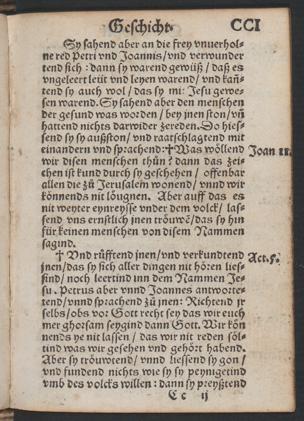 Geschicht.
CCI
Sy sahend aber an die frey vnuerhol-
ne red Petri vnd Joannis/vnd verwunder
tend sich : dann sy warend gewüß/ daß es
vngeleert leüt vnd leyen warend/ vnd kañ-
tend sy auch wol/ das sy mi: Jesu gewe-
sen warend. Sy sahend aber den menschen
der gesund was worden/ bey jnen ston/vñ
hattend nichts darwider zereden. Do hies-
send sy sy außston/ vnd raatschlagtend mit
einanden vnd sprachend:✝Was wöllend
Joan 11.
wir disen menschen thůn? dann das zei-
chen ist kund durch sy geschehen/ offenbar
allen die zů Jerusalem wonend/ vnnd wir
könnends nit löugnen. Aber auff das es
nit weyter eynreysse vnder dem volck/ las-
send vns ernstlich jnen tröuwẽ/das sy hin
für keinen menschen von disem Nammen
sagind.
✝ Vnd růfftend jnen/vnd verkundtend
Act.5.
jnen/das sy sich aller dingen nit hören lies-
sind/ noch leertind inn dem Nammen Je-
su. Petrus aber vnnd Joannes antworte-
tend/vnnd sprachend zů jnen: Richtend jr
selbs/obs vor Gott recht sey das wir euch
mer ghorsam seygind dann Gott. Wir kön
nends ye nit lassen/ das wir nit reden söl-
tind was wir gesehen vnd gehört habend.
Aber sy tröuwtend/ vnnd liessend sy gon/
vnd fundend nichts wie sy sy peynigetind
vmb des volcks willen : dann sy preyßtend
C c ij